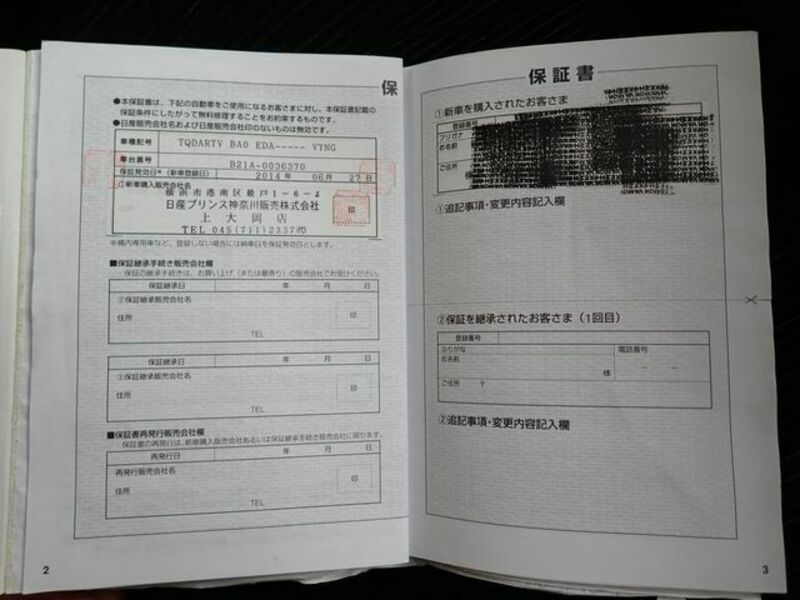 保
●本保証書は、下記の自動車をご使用になるお客さまに対し、本保証書記載の
保証条件にしたがって無料修理することをお約束するものです。
●日産販売会社名および日産販売会社印のないものは無効です。
車種記号 TQDARTV BA0 EDA----- VYNG
車台番号 B21A-0036370
保証発効日*(新車登録日) 2014 年 06月 27 日
①新車購入販売会社名
横浜市港南区最戸1-6-4
日産プリンス神奈川販売株式会社
上大岡店
TEL 045(711)2337㈹
印
※構内専用車など、登録しない場合には納車日を保証発効日とします。
■保証継承手続き販売会社欄
保証の継承手続きは、お買い上げ(または最寄り)の販売会社でお受けください。
保証継承日 年 月 日
②保証継承販売会社名
住所
印
TEL
保証継承日 年 月 日
③保証継承販売会社名
住所
印
TEL
■保証書再発行販売会社欄
保証書の再発行は、新車購入販売会社あるいは保証継承手続き販売会社に限ります。
再発行日 年 月 日
再発行販売会社名
住所
印
TEL
2
保証書
①新車を購入されたお客さま
登録番号
フリガナ
お名前
ご住所
①追記事項・変更内容記入欄
②保証を継承されたお客さま(1回目)
登録番号
ふりがな
お名前
様
電話番号
－ －
ご住所 〒
②追記事項・変更内容記入欄
3